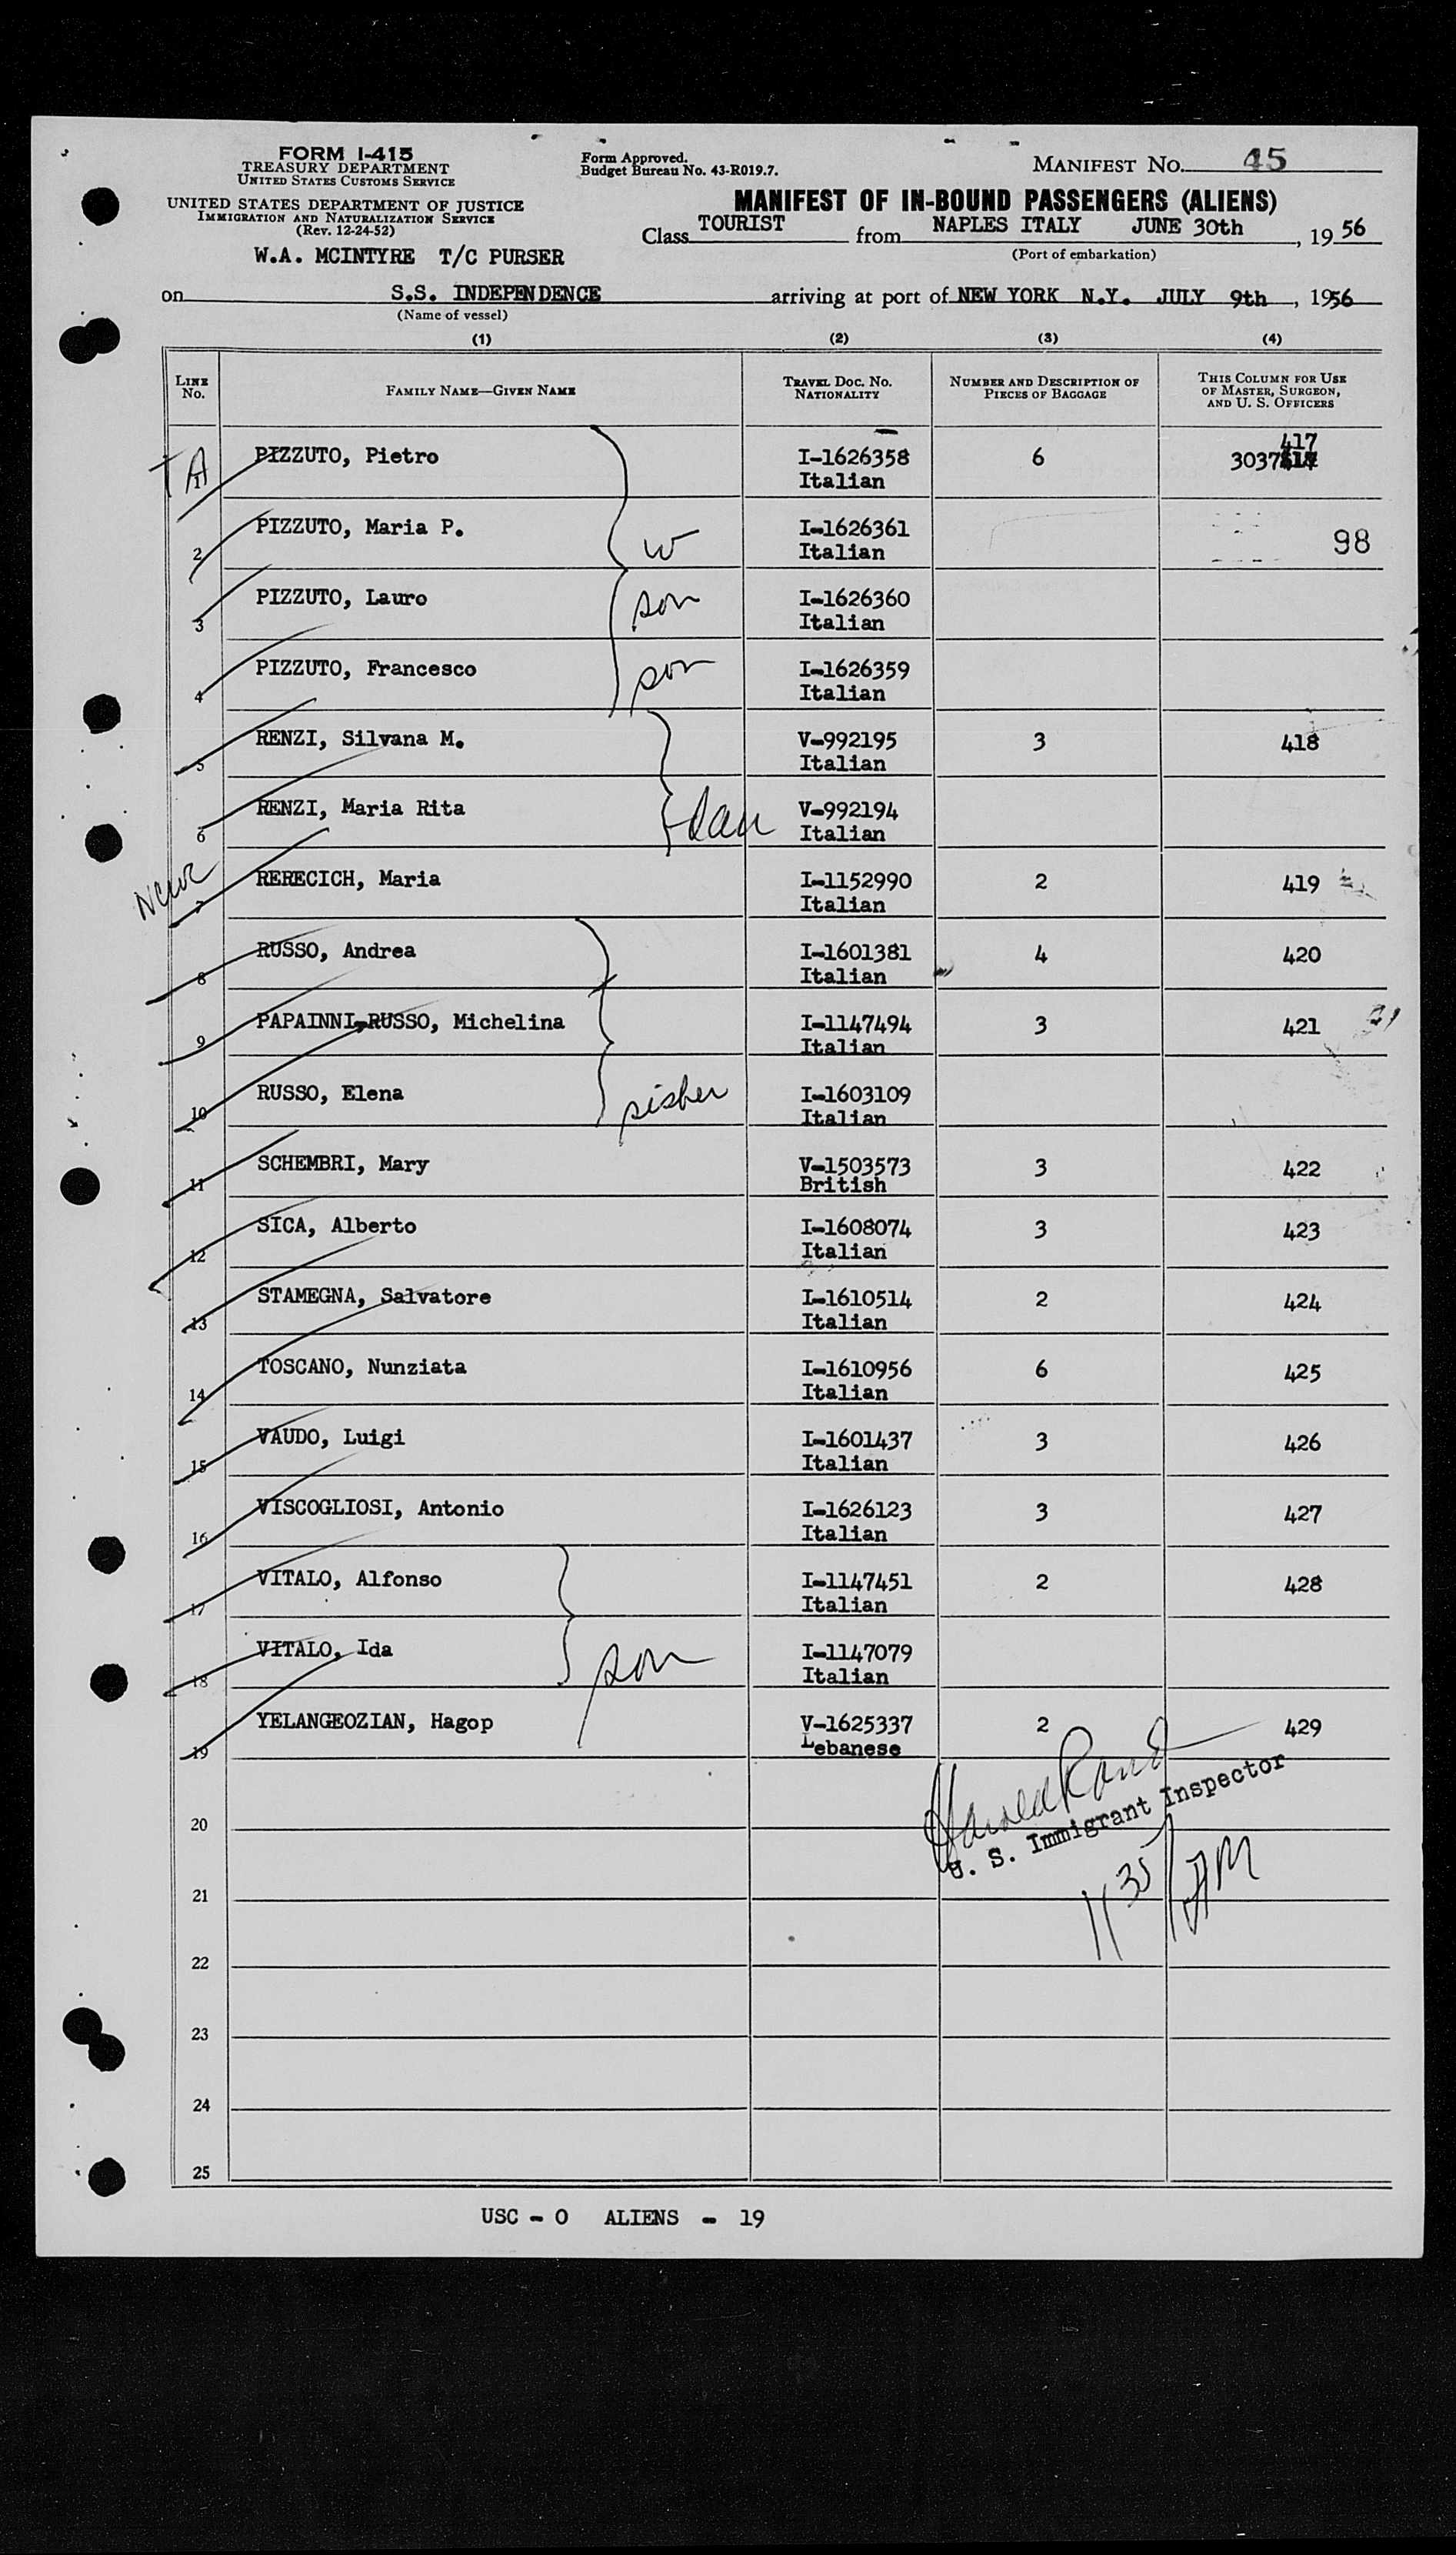 FORM I-415
TREASURY DEPARTMENT
UNITED STATES CUSTOMS SERVICE
UNITED STATES DEPARTMENT OF JUSTICE
IMMIGRATION AND NATURALIZATION SERVICE
(Rev. 12-24-52)
W.A. MCINTYRE T/C PURSER
Form Approved.
Budget Bureau No. 43-R019.7.
MANIFEST No. 45
MANIFEST OF IN-BOUND PASSENGERS (ALIENS)
Class TOURIST from NAPLES ITALY JUNE 30th, 1956
(Port of embarkation)
on S.S. INDEPENDENCE arriving at port of NEW YORK N.Y. JULY 9th, 1956
(Name of vessel)
(1) (2) (3) (4)
LINE No. FAMILY NAME—GIVEN NAME TRAVEL DOC. NO. NATIONALITY NUMBER AND DESCRIPTION OF PIECES OF BAGGAGE THIS COLUMN FOR USE OF MASTER, SURGEON, AND U. S. OFFICERS
A 1 PIZZUTO, Pietro I-1626358 6 3037 417
Italian
2 PIZZUTO, Maria P. w I-1626361 98
Italian
3 PIZZUTO, Lauro son I-1626360
Italian
4 PIZZUTO, Francesco son I-1626359
Italian
5 RENZI, Silvana M. V-992195 3 418
Italian
6 RENZI, Maria Rita dau V-992194
Italian
7 RERECICH, Maria I-1152990 2 419
Italian
8 RUSSO, Andrea I-1601381 4 420
Italian
9 PAPAINNI-RUSSO, Michelina I-1147494 3 421
Italian
10 RUSSO, Elena sister I-1603109
Italian
11 SCHEMBRI, Mary V-1503573 3 422
British
12 SICA, Alberto I-1608074 3 423
Italian
13 STAMEGNA, Salvatore I-1610514 2 424
Italian
14 TOSCANO, Nunziata I-1610956 6 425
Italian
15 VAUDO, Luigi I-1601437 3 426
Italian
16 VISCOGLIOSI, Antonio I-1626123 3 427
Italian
17 VITALO, Alfonso I-1147451 2 428
Italian
18 VITALO, Ida son I-1147079
Italian
19 YELANGEOZIAN, Hagop V-1625337 2 429
Lebanese
20
U. S. Immigrant Inspector
21 11 35 AM
22
23
24
25
USC - 0 ALIENS - 19